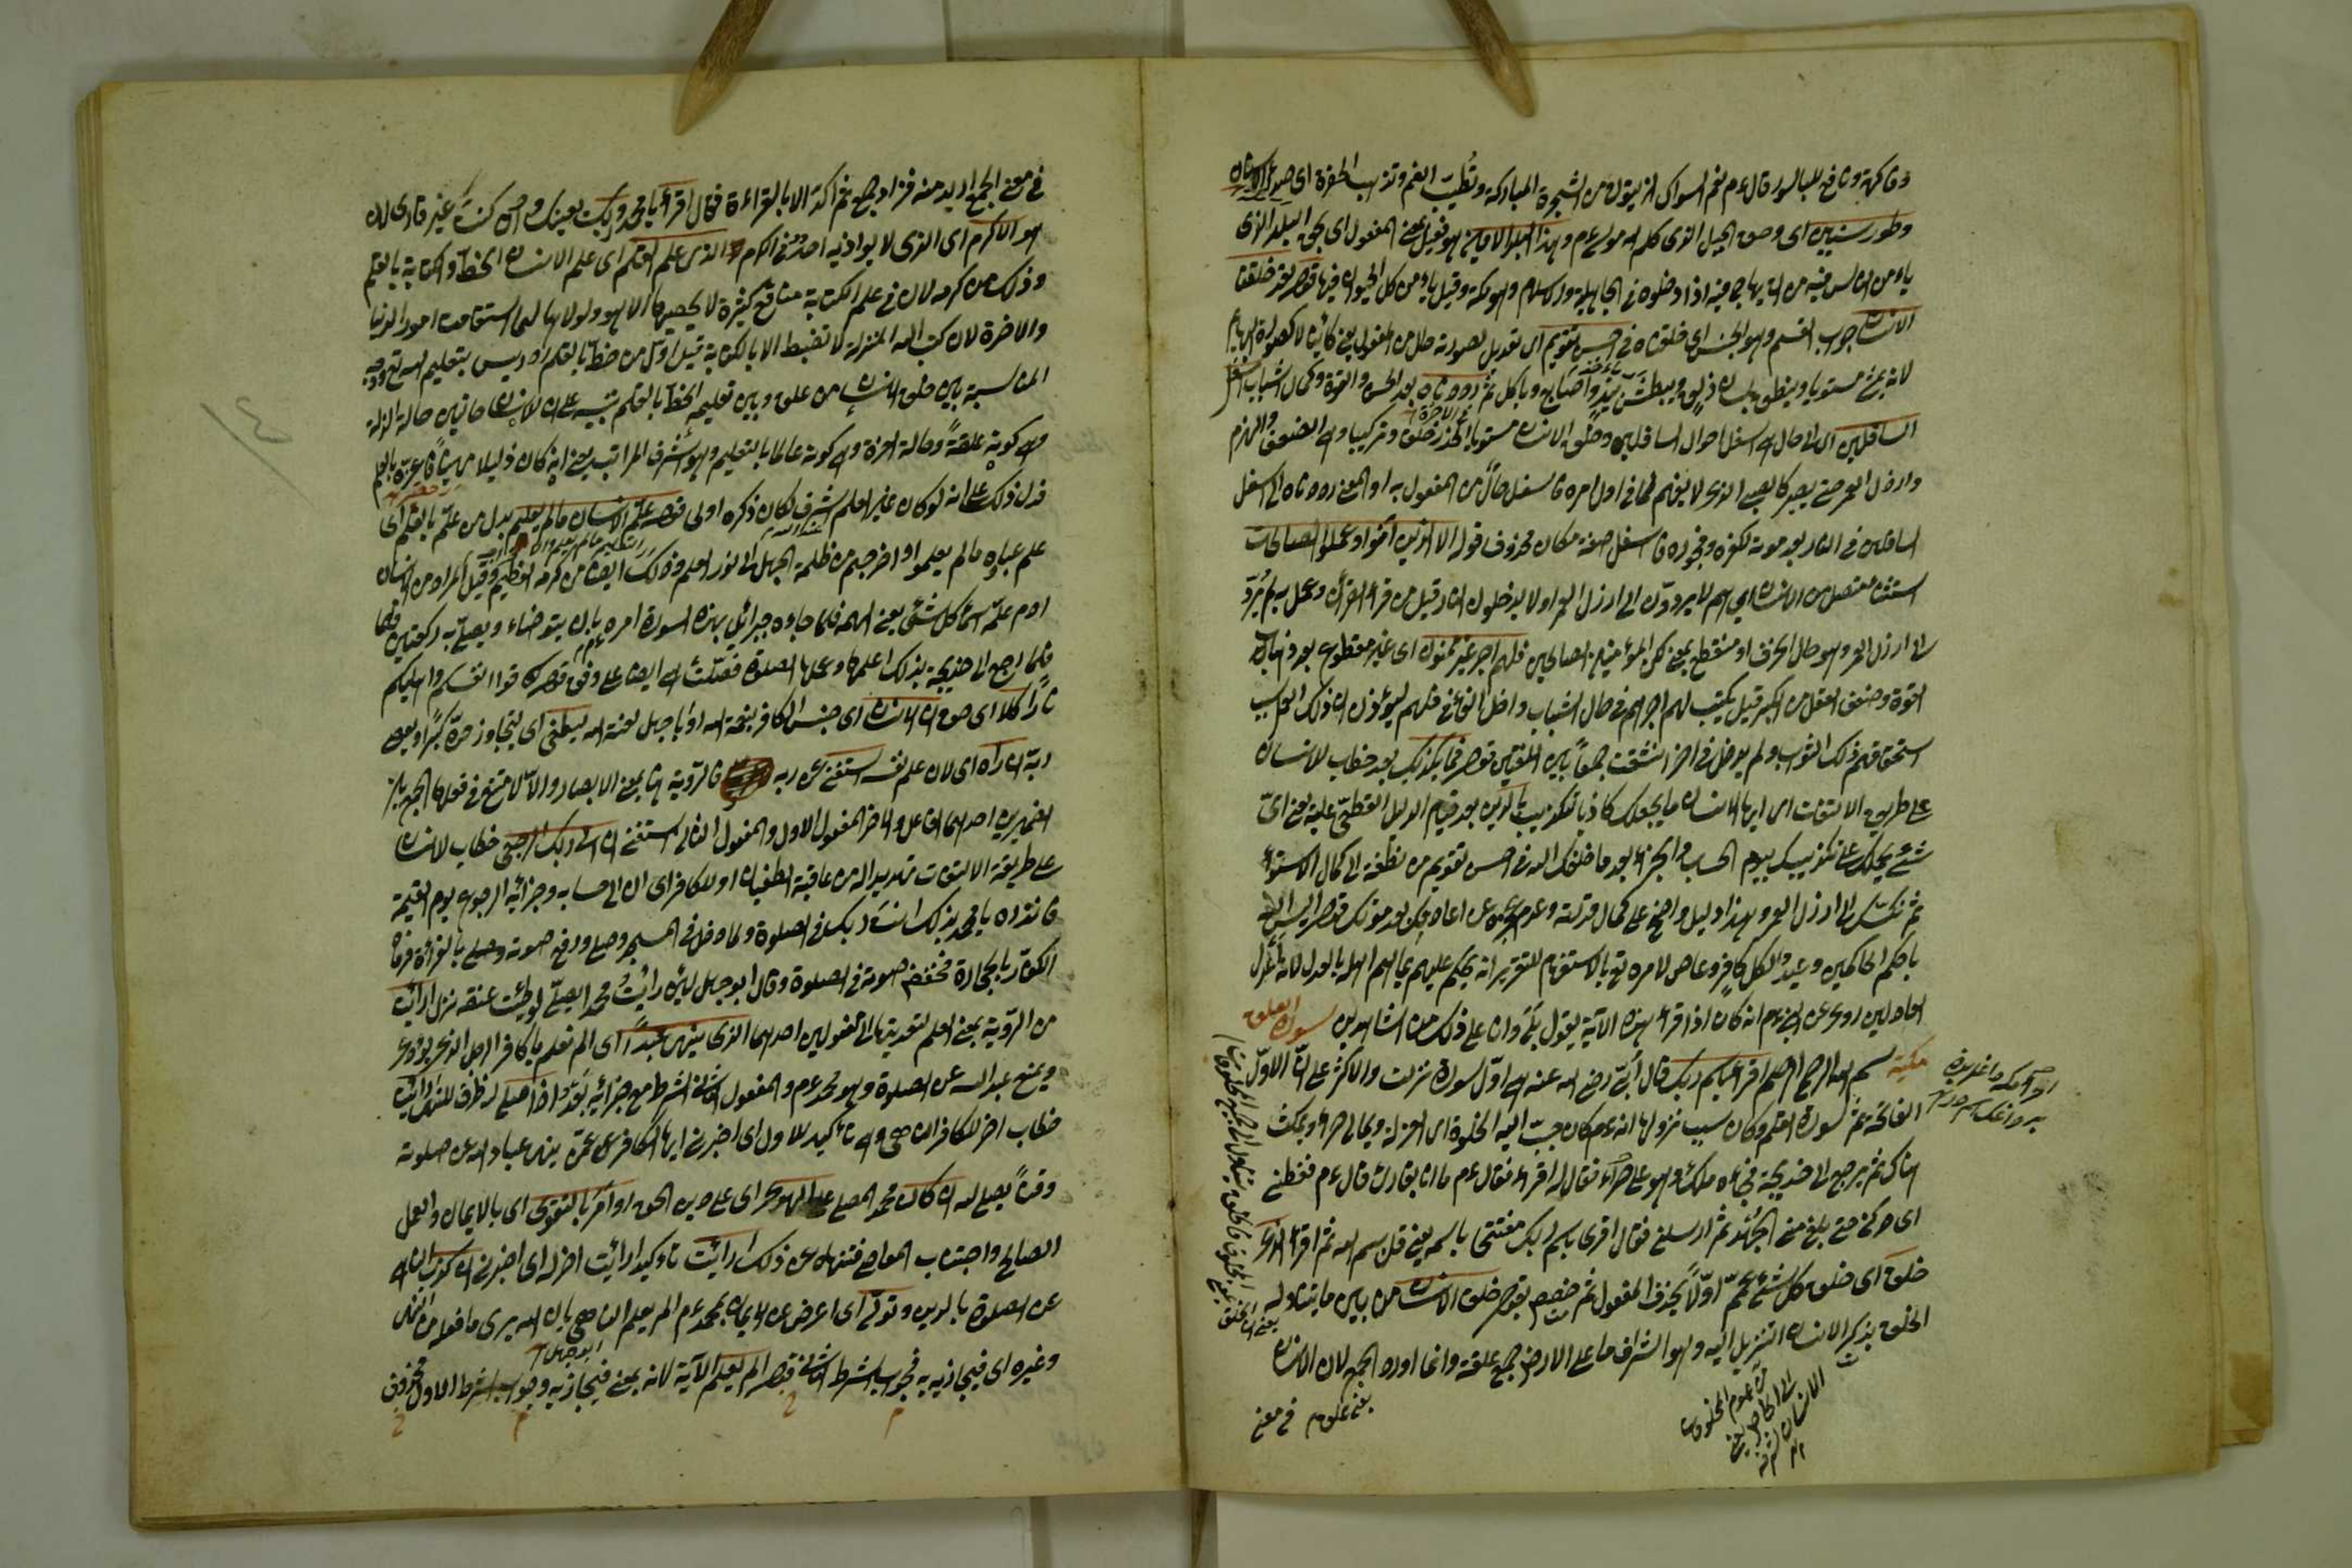 وفاكهة ونافع للباسور قال عم نعم السواك الزيتون من الشجرة المباركة ويطيب الفم وتذهب الحفرة
وطور سينين اى وحق الجبل الذى كلم الله موسى عم وهذا البلد الامين هو فعيل بمعنى المفعول اى بحق البلد الذى
يأمن الناس فيه من يهاجى فيه اذا دخلوه فى الجاهلية والاسلام وهو مكة وقيل يأمن كل الحيوان فيها قوله لقد خلقنا
الانسان جواب القسم وهو الجنس اى خلقناه فى احسن تقويم اى تعديل لصورته حال من المفعول يعنى كائنا لا كصورة البهايم
لانه يمشى مستويا وينطق بلسان ذلق ويبطش بيد واصابع وياكل ثم رددناه بعد الحسن والقوة وكمال الشباب اسفل
السافلين اى الى حال هى اسفل احوال السافلين وخلق الانسان مستويا وتركيبا وهى الضعف والهرم
وارذل العمر حتى يصير كالصبى الذى لا يفهم كما فى اول امره فاسفل حال من المفعول به او المعنى رددناه الى اسفل
السافلين فى النار بعد موته لكفره وفجوره فاسفل صفة مكان محذوف قوله الا الذين آمنوا وعملوا الصالحات
استثناء متصل من الانسان اى هم لا يردون الى ارذل العمر اولا يدخلون النار وقيل من قرأ القرآن وعمل به لم يرد
الى ارذل العمر وهو حال الخرف او منقطع بمعنى لكن المؤمنين الصالحين فلهم اجر غير ممنون اى غير مقطوع بعد ذهاب
القوة وضعف العقل من الكبر قيل يكتب لهم اجرهم فى حال الشباب وادخل الفاء فى فلهم
استحقاقهم ذلك الثواب ولم يدخل فى آخر انشقت جمعا بين اللغتين قوله فما يكذبك بعد خطاب للانسان
على طريق الالتفات اى ايها الانسان ما يجعلك كاذبا بتكذيب بالدين بعد قيام الدليل القطعى عليه يعنى اى
شئ يحملك على تكذيبك بيوم الحساب والجزاء بعد ما خلقك الله فى احسن تقويم من نطفة الى كمال الاستواء
ثم نكسك الى ارذل العمر وهذا دليل واضح على كمال قدرته وعدم عجزه عن اعادتكن بعد موتك قوله اليس الله
باحكم الحاكمين وعيد لكل كافر وعاص لامره تع بالاستفهام للتقرير انه يحكم عليهم بما هم اهله بالعدل لانه اعدل
العادلين روى عن النبى عم انه كان اذا قرأ هذه الآية يقول بلى وانا على ذلك من الشاهدين سورة العلق
مكية بسم الله الرحمن الرحيم اقرأ باسم ربك قال ابى رضى الله عنه هى اول سورة نزلت والاكثر على ان الاول
الفاتحة ثم سورة القلم وكان سبب نزولها انه عم كان حبب اليه الخلوة اى العزلة وياتى حراء ويمكث
هناك ثم يرجع الى خديجة فجاءه ملك وهو على حراء فقال له اقرأ فقال عم ما انا بقارئ قال عم فغطنى
اى حركنى حتى بلغ منى الجهد ثم ارسلنى فقال اقرأ باسم ربك مفتتحا باسمه يعنى قل بسم الله ثم اقرأ الذى
خلق اى خلق كل شئ عمم اولا بحذف المفعول ثم خصص بقوله خلق الانسان من بين ما يتناوله
الخلق بذكر الانسان التنزيل اليه وهو اشرف ما على الارض جمع علقة وانما اورد الجمع لان الانسان
يعنى علق فى معنى
فى معنى الجمع اريد منه فزاد جمع ثم اكد الامر بالقراءة فقال اقرأ يا محمد وربك يعينك وان كنت غير قارئ لان
هو الاكرم اى الذى لا يوازيه احد فى الكرم الذى علم بالقلم اى علم الانسان الخط والكتابة بالقلم
وذلك من كرمه لان فى علم الكتابة منافع كثيرة لا يحصيها الا هو ولولاها لما استقامت امور الدنيا
والاخرة لان كتب الله المنزلة لا تضبط الا بالكتابة قيل اول من خط بالقلم ادريس بتعليم الله تع ووجه
المناسبة بين خلق الانسان من علق وبين تعليمه الخط بالقلم تنبيه على ان للانسان حالتين حالة الذلة
وهى كونه علقة وحالة العزة وهى كونه عالما بالتعليم وهو اشرف المراتب يعنى انه كان ذليلا
فدل ذلك على انه لو كان غير العلم اشرف لكان ذكره اولى قوله علم الانسان ما لم يعلم بدل من علم بالقلم اى
علم عباده ما لم يعلموا واخرجهم من ظلمة الجهل الى نور العلم وذلك ايضا من كرمه العظيم وقيل المراد من الانسان
آدم علمه اسماء كل شئ يعنى الهمه فلما جاءه جبرائيل بهذه السورة امره بان يتوضأ ويصلى به ركعتين
فلما رجع الى خديجة بذلك اعلمها وعلمها الصلوة فصلت هى ايضا على وفق قوله قوا انفسكم واهليكم
نارا كلا اى حق ان الانسان اى جنس الكافر بنعمة الله او ابا جهل لعنه الله ليطغى اى يتجاوز حده كبرا
ربه ان رآه اى لان علم نفسه استغنى عن ربه فالرؤية هنا بمعنى الابصار والا لامتنع فى فعلها الجمع بين
الضميرين احدهما الفاعل والآخر المفعول الاول والمفعول الثانى استغنى ان الى ربك الرجعى خطاب للانسان
على طريقة الالتفات تهديدا له من عاقبة الطغيان او للكافر اى ان الى حسابه وجزائه الرجوع يوم القيمة
فانذره يا محمد بذلك ربك فى الصلوة ولما دخل فى المسجد وصلى ورفع صوته بالقراءة فرماه
الكفار بالحجارة فخفض صوته فى الصلوة وقال ابو جهل لئن رايت محمدا يصلى لوطئت عنقه نزل ارايت
من الرؤية بمعنى العلم لتعديتها الى المفعولين احدهما الذى ينهى عبدا اى الم تعلم يا كافر الرجل الذى يؤذى
ويمنع عبد الله عن الصلوة وهو محمد عم والمفعول الثانى الشرط مع جزائه بعد واذا صلى ظرف للنهى ارايت
خطاب آخر للكافر الناهى وهى تأكيد للاول اى اخبرنى ايها الكافر عن عمن ينهى عباد الله عن صلوته
وقتا يصلى لله ان كان محمد المصلى على الهدى اى على دين الحق او امر بالتقوى اى بالايمان والعمل
الصالح واجتناب المعاصى فتنهاه عن ذلك ارايت تأكيد ارايت آخر له اى اخبرنى ان كذب الناهى
عن الصلوة بالدين وتولى اى اعرض عن الايمان بمحمد عم الم يعلم الناهى بان الله يرى ما فعله من النهى
وغيره اى فيجازيه به فجواب الشرط الثانى قوله الم يعلم الآية لانه بمعنى فيجازيه وجواب الشرط الاول محذوف
ابو جهل